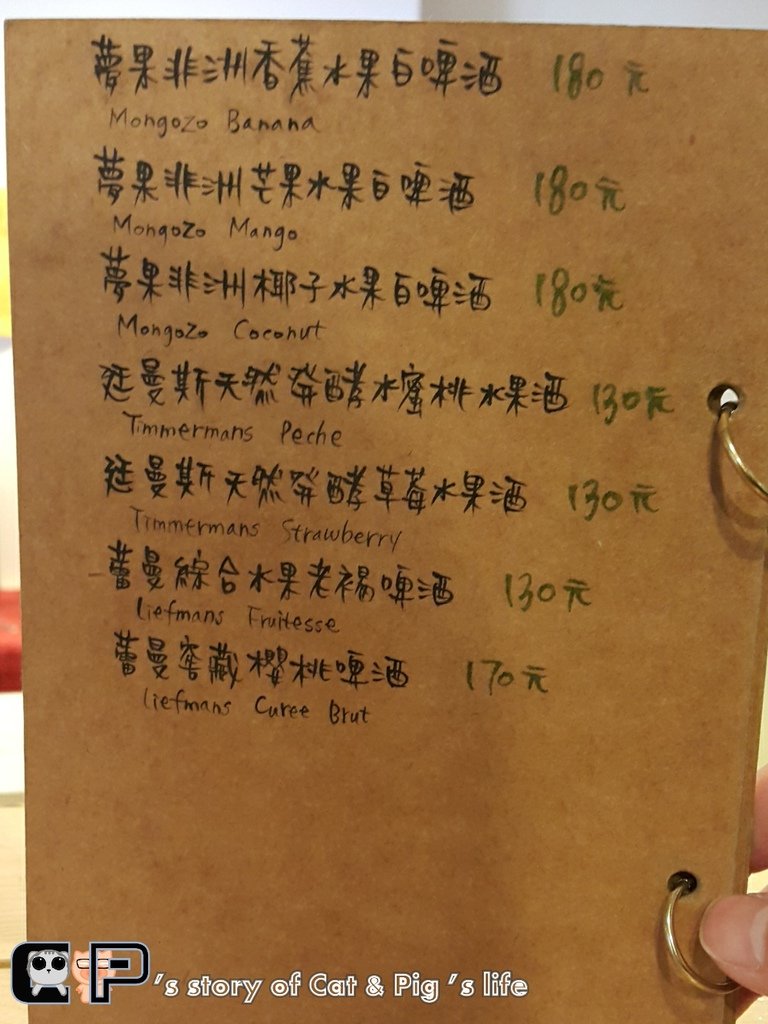 夢果非洲香蕉水果白啤酒 180元
Mongozo Banana
夢果非洲芒果水果白啤酒 180元
Mongozo Mango
夢果非洲椰子水果白啤酒 180元
Mongozo Coconut
廷曼斯天然發酵水蜜桃水果酒 130元
Timmermans Peche
廷曼斯天然發酵草莓水果酒 130元
Timmermans Strawberry
蕾曼綜合水果老褐啤酒 130元
Liefmans Fruitesse
蕾曼窖藏櫻桃啤酒 170元
Liefmans Curee Brut
CP's story of Cat & Pig's life